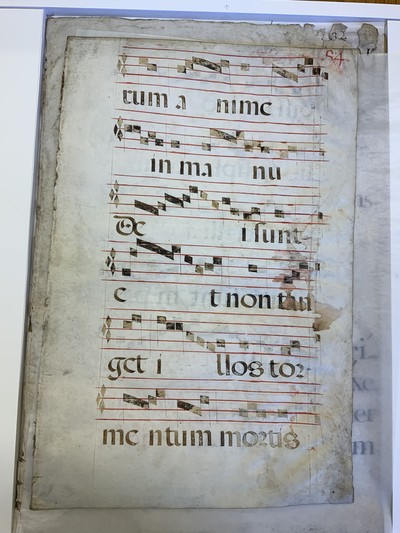 62
54.
rum a nime
in ma nu
De i sunt
e t non tan
get i llos tor
me ntum mortis